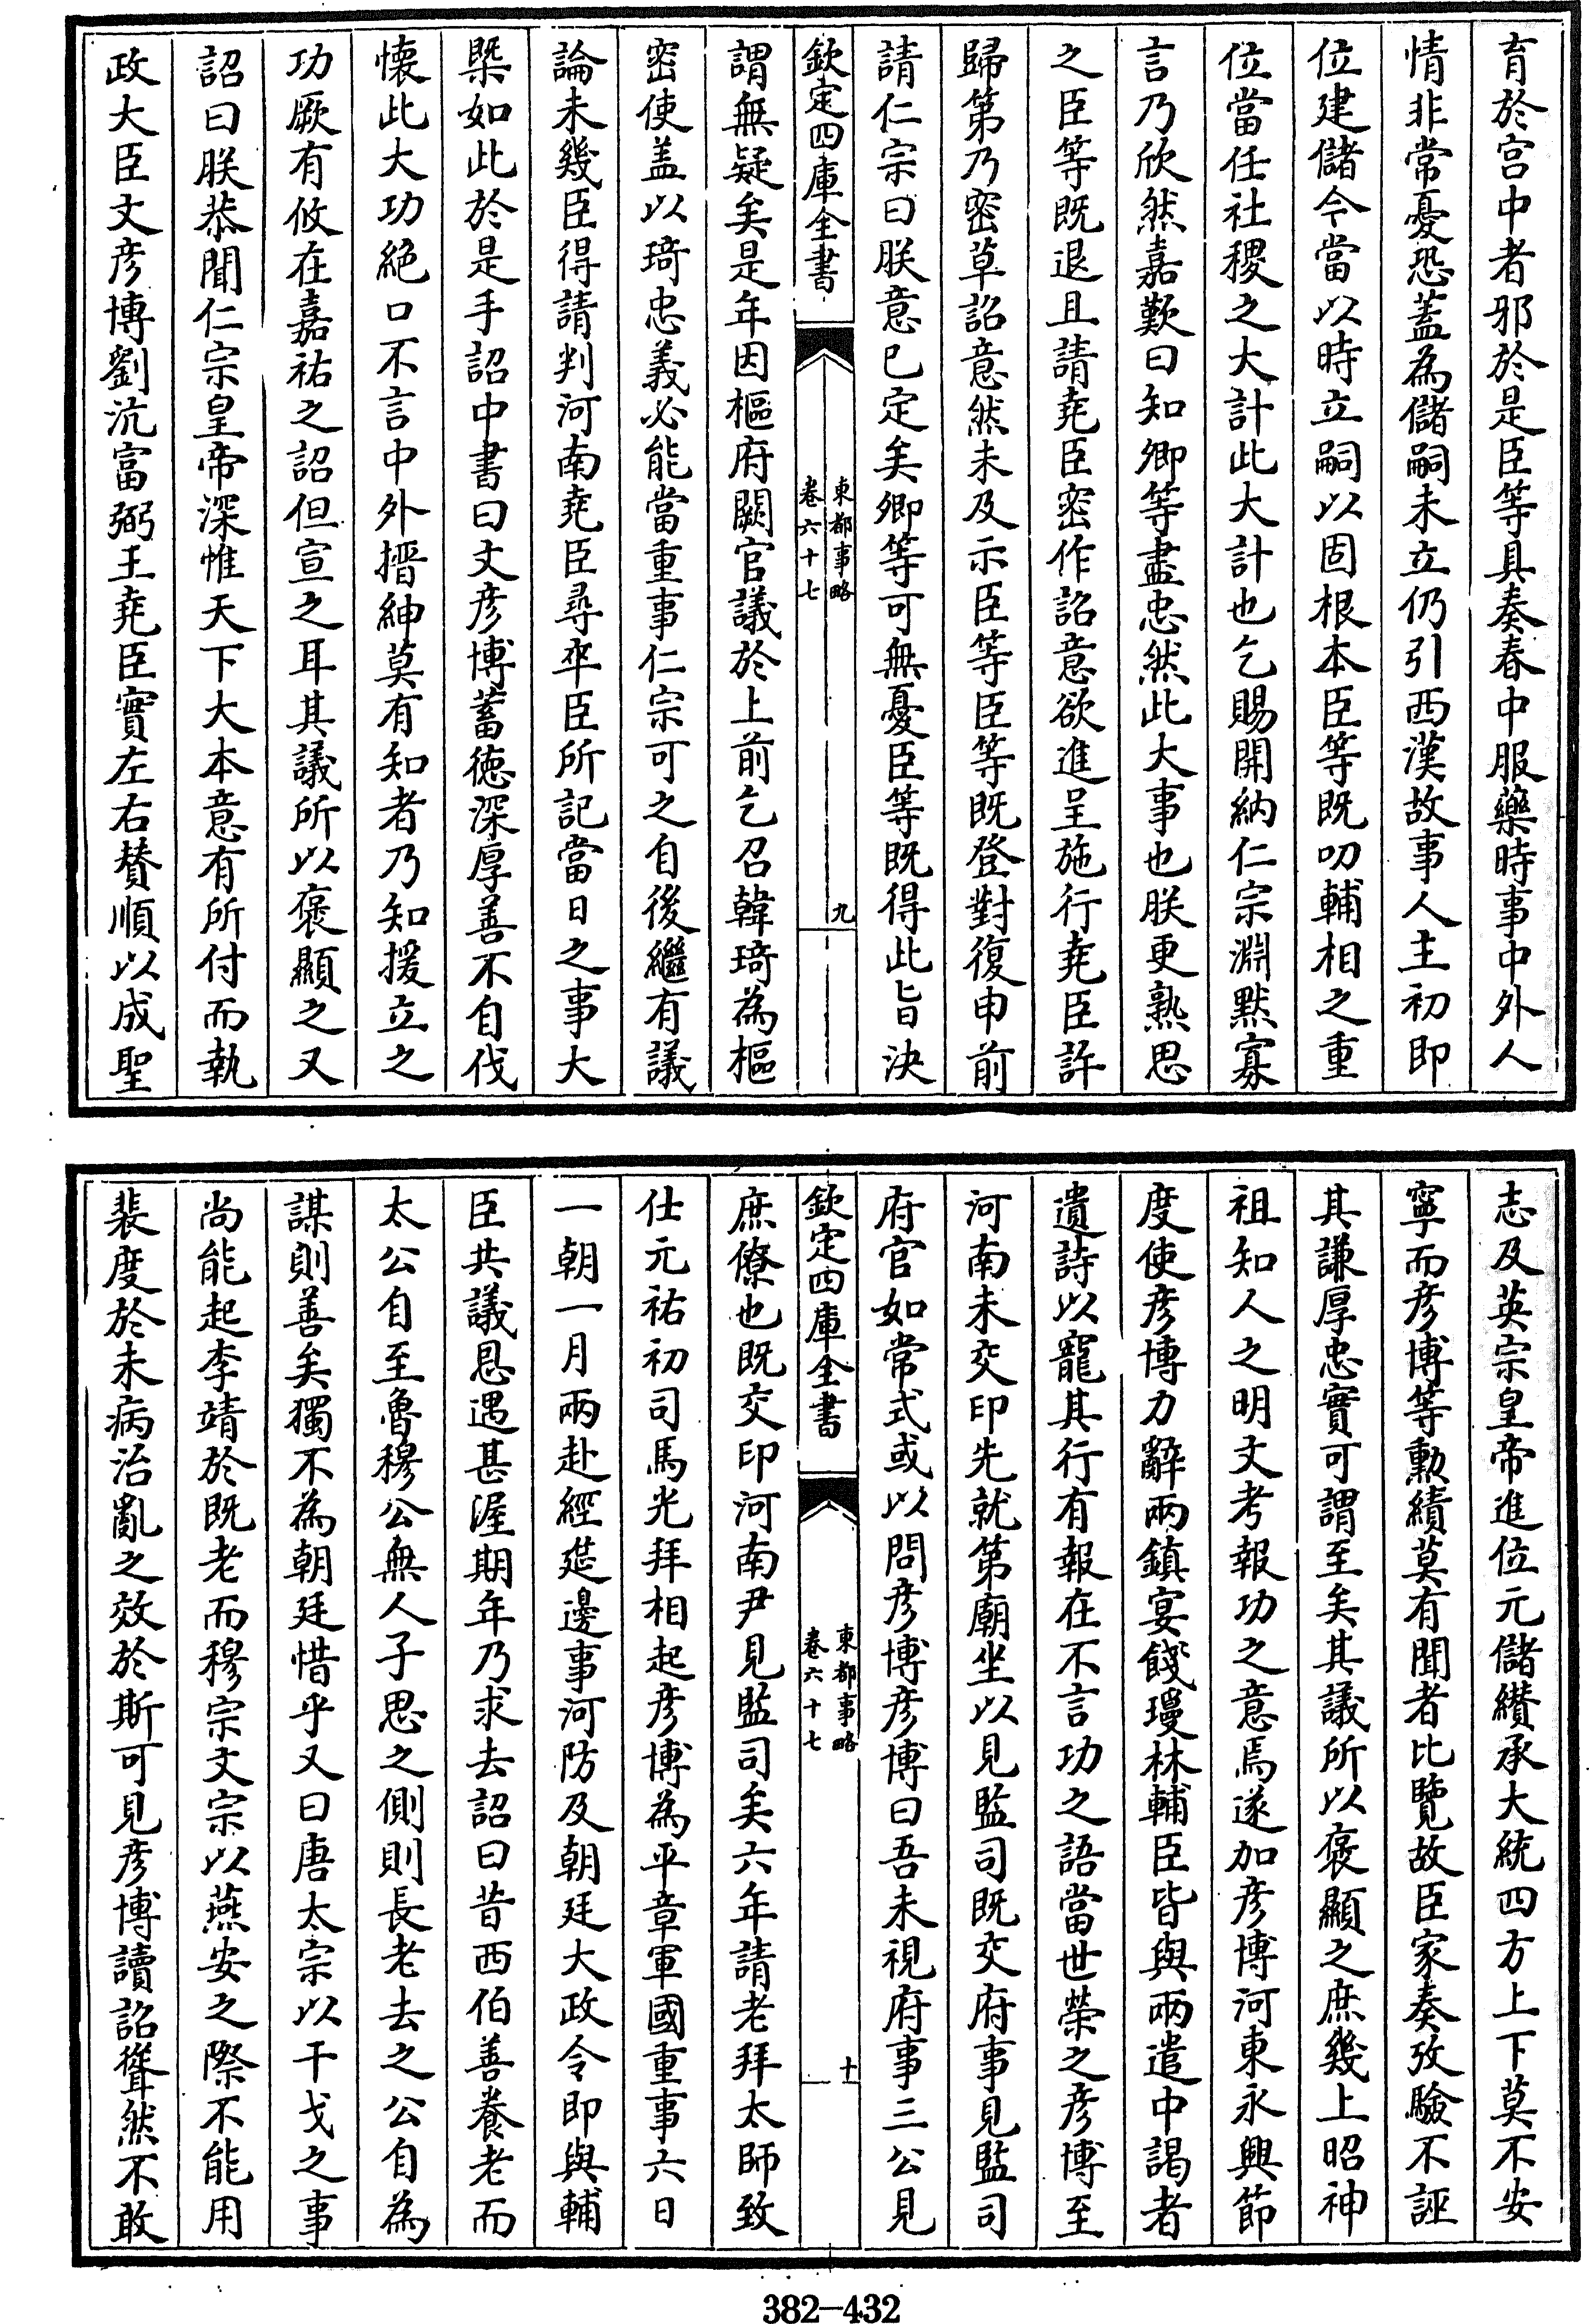 育於宫中者邪於是臣等具奏春中服藥時事中外人
情非常憂恐蓋為儲嗣未立仍引西漢故事人主初即
位建儲今當以時立嗣以固根本臣等既叨輔相之重
位當任社稷之大計此大計也乞賜開納仁宗淵黙寡
言乃欣然嘉歎曰知卿等盡忠然此大事也朕更熟思
之臣等既退且請堯臣密作詔意欲進呈施行堯臣許
歸第乃密草詔意然未及示臣等臣等既登對復申前
請仁宗曰朕意已定矣卿等可無憂臣等既得此旨決
欽定四庫全書
東都事略
卷六十七
九
謂無疑矣是年因樞府闕官議於上前乞召韓琦為樞
密使盖以琦忠義必能當重事仁宗可之自後繼有議
論未幾臣得請判河南堯臣尋卒臣所記當日之事大
槩如此於是手詔中書曰文彦博蓄徳深厚善不自伐
懐此大功絶口不言中外搢紳莫有知者乃知援立之
功厥有攸在嘉祐之詔但宣之耳其議所以褒顯之又
詔曰朕恭聞仁宗皇帝深惟天下大本意有所付而執
政大臣文彦博劉沆富弼王堯臣實左右賛順以成聖
志及英宗皇帝進位元儲纘承大統四方上下莫不安
寧而彦博等勲績莫有聞者比覽故臣家奏攷驗不誣
其謙厚忠實可謂至矣其議所以褒顯之庶幾上昭神
祖知人之明文考報功之意焉遂加彦博河東永興節
度使彦博力辭兩鎮宴餞瓊林輔臣皆與兩遣中謁者
遺詩以寵其行有報在不言功之語當世榮之彦博至
河南未交印先就第廟坐以見監司既交府事見監司
府官如常式或以問彦博彦博曰吾未視府事三公見
欽定四庫全書
東都事略
卷六十七
十
庶僚也既交印河南尹見監司矣六年請老拜太師致
仕元祐初司馬光拜相起彦博為平章軍國重事六日
一朝一月兩赴經筵邊事河防及朝廷大政令即與輔
臣共議恩遇甚渥期年乃求去詔曰昔西伯善養老而
太公自至魯穆公無人子思之側則長老去之公自為
謀則善矣獨不為朝廷惜乎又曰唐太宗以干戈之事
尚能起李靖於既老而穆宗文宗以燕安之際不能用
裴度於未病治亂之效於斯可見彦博讀詔聳然不敢
382-432